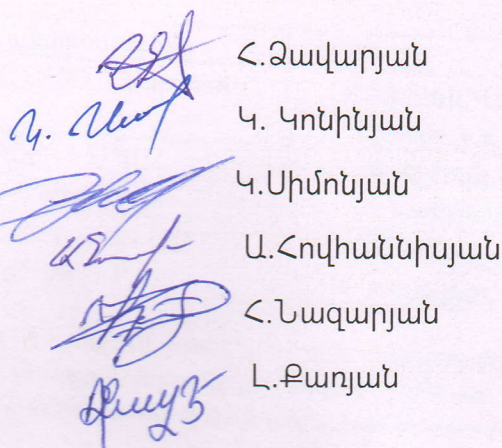 Հ.Ձավարյան
Կ. Կոնինյան
Կ.Սիմոնյան
Ա.Հովհաննիսյան
Հ.Նազարյան
Լ.Քառյան